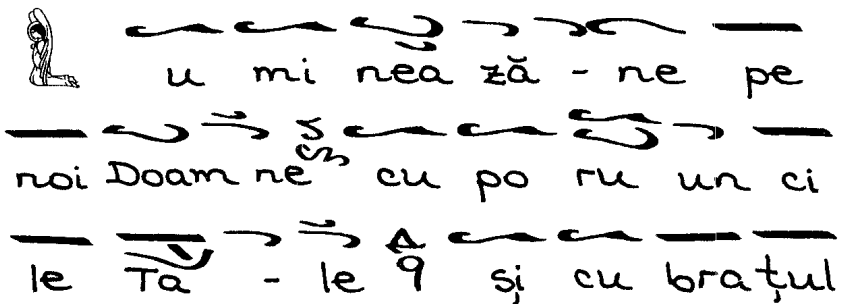 L u mi nea ză - ne pe
noi Doam ne cu po ru un ci
le Ta - le și cu brațul